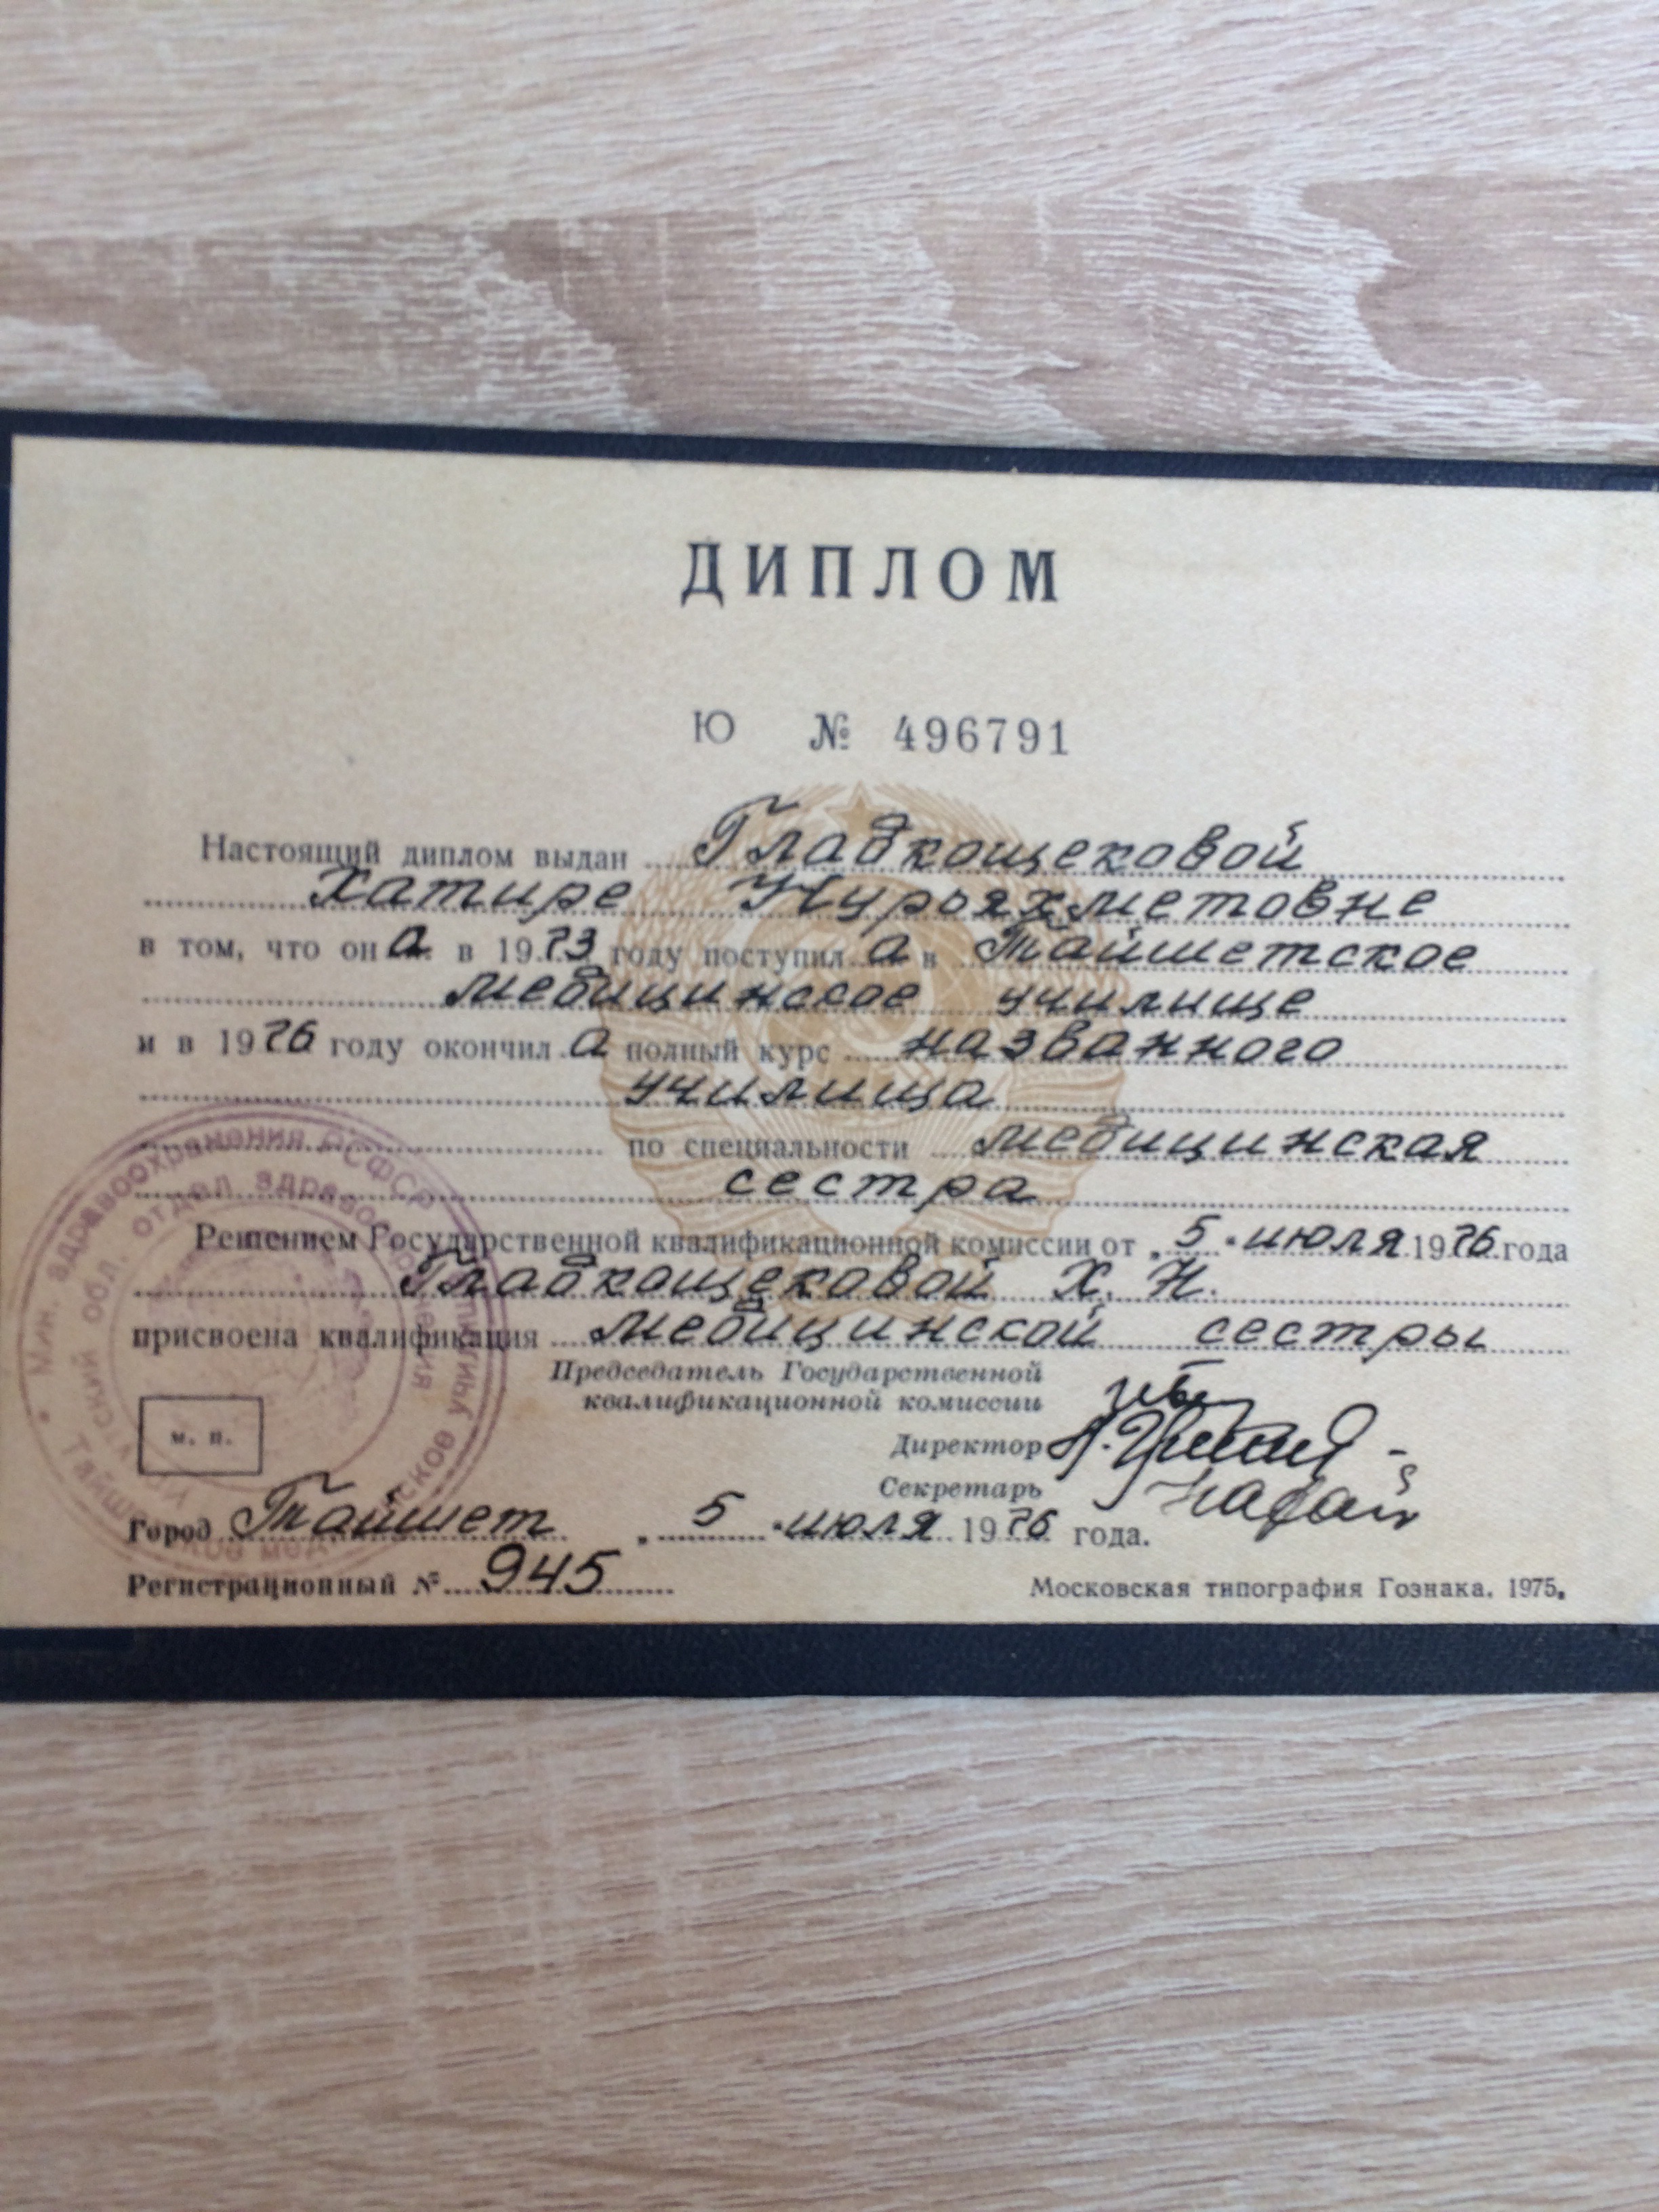 ДИПЛОМ
Ю № 496791
Настоящий диплом выдан Гладкощековой
Хатире Нурьяхметовне
в том, что она в 1973 году поступила в Тайшетское
медицинское училище
и в 1976 году окончила полный курс названного
училища
по специальности медицинская
сестра
Решением Государственной квалификационной комиссии от „5“ июля 1976 года
Гладкощековой Х. Н.
присвоена квалификация медицинской сестры
Председатель Государственной
квалификационной комиссии
Директор
Секретарь
м. п.
Город Тайшет „5“ июля 1976 года.
Регистрационный № 945
Московская типография Гознака. 1975.
Мин. здравоохранения РСФСР
обл. отдел здравоохранения